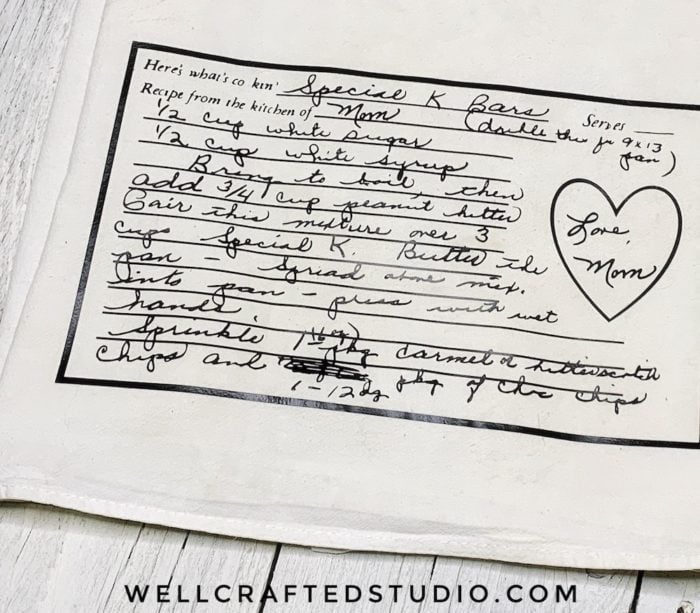 Here's what's co kin' Special K Bars Serves
Recipe from the kitchen of Mom (double this for 9x13
pan)
1/2 cup white sugar
1/2 cup white syrup
Bring to boil, then
add 3/4 cup peanut butter
Pour this mixture over 3
cups Special K. Butter the
pan - Spread above mix.
into pan - press with wet
hands.
Sprinkle 1 pkg carmel or butterscotch
chips and 1-12 oz pkg of choc chips
Love,
Mom
WELLCRAFTEDSTUDIO.COM